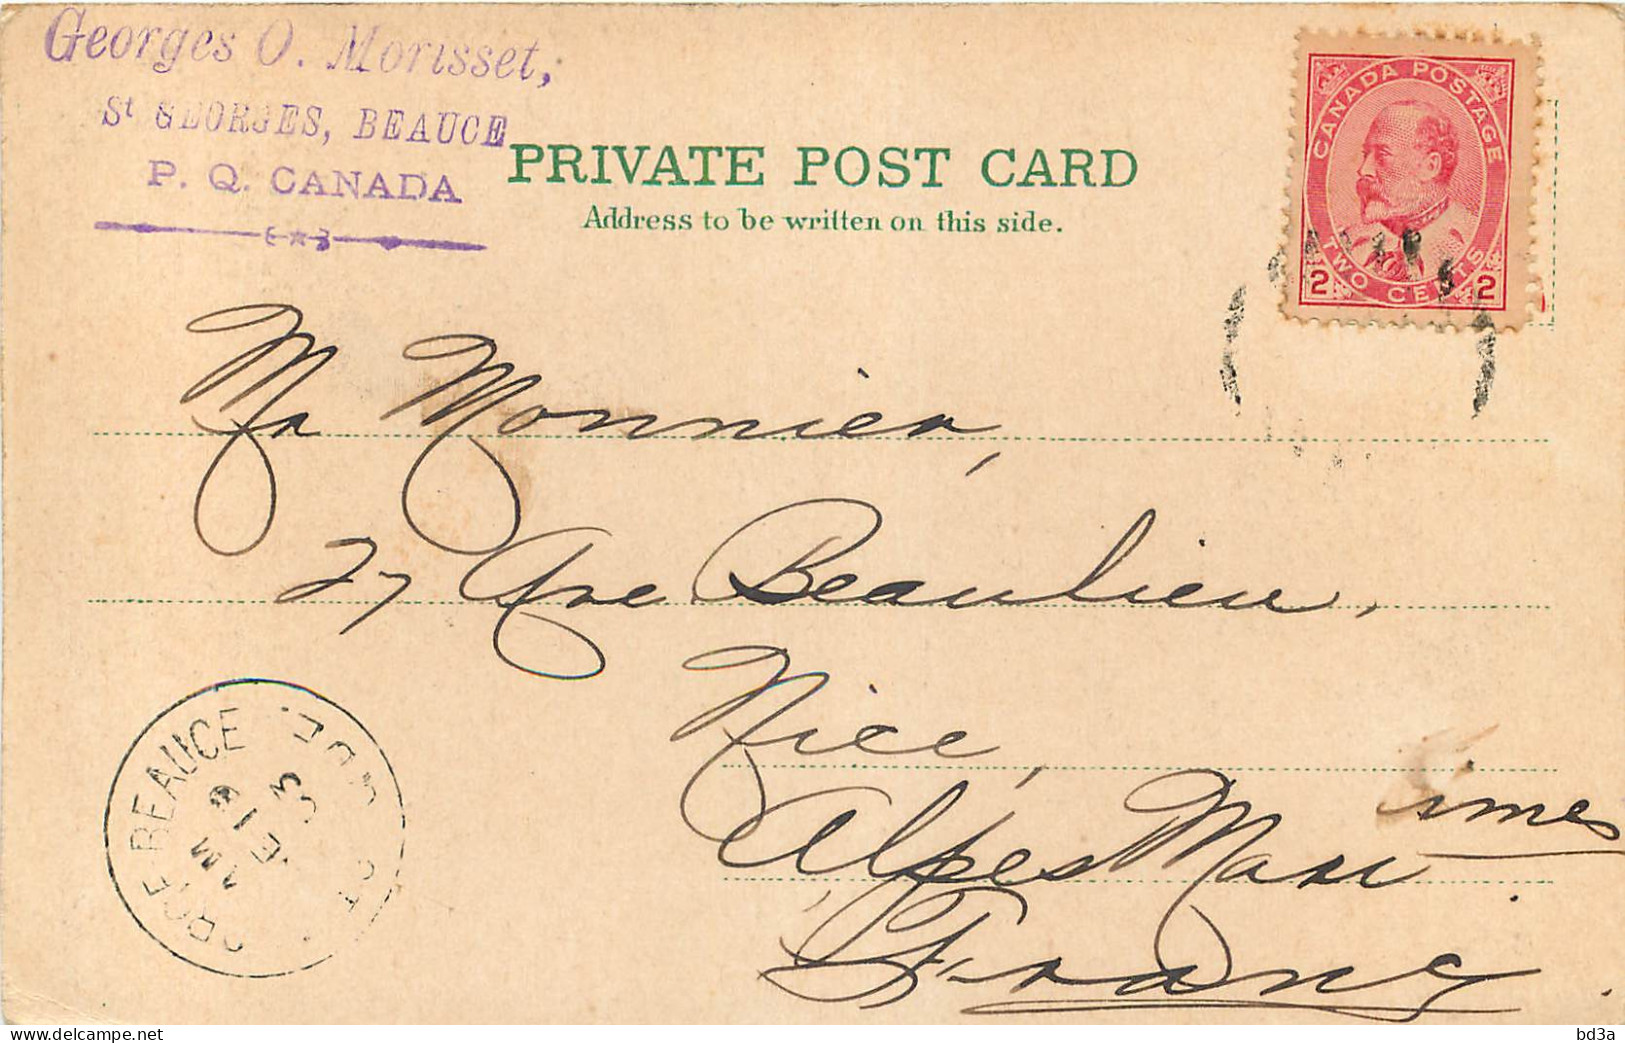 Georges O. Morisset,
St GEORGES, BEAUCE
P. Q. CANADA
PRIVATE POST CARD
Address to be written on this side.
CANADA POSTAGE
2 TWO CENTS 2
Mr Monnier,
27 Ave Beaulieu,
Nice,
Alpes Mari imes
Franc
BEAUCE
AM
03
bd3a